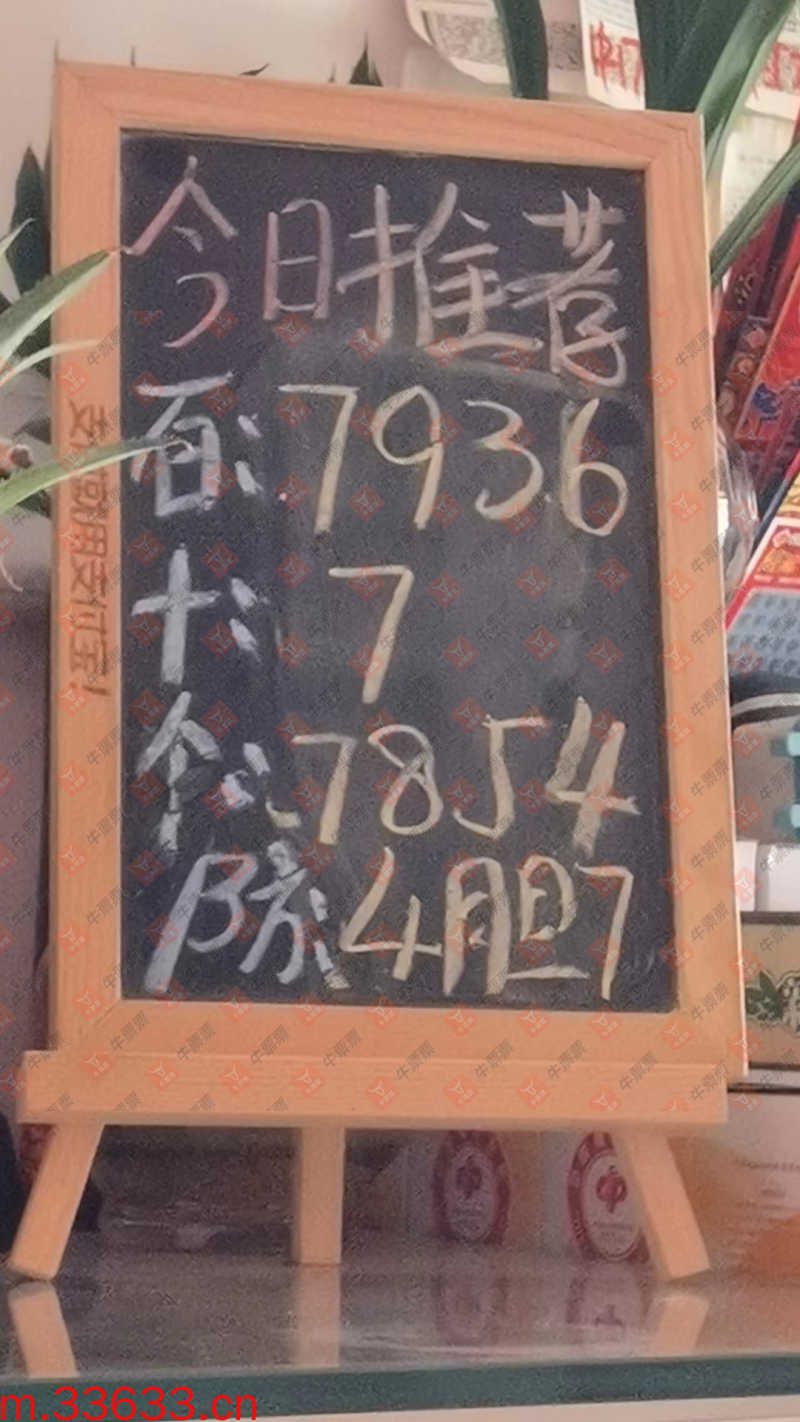 今日推荐
百：7936
十：7
个：7854
防：4胆7
用支付宝！
牛票票
m.33633.cn